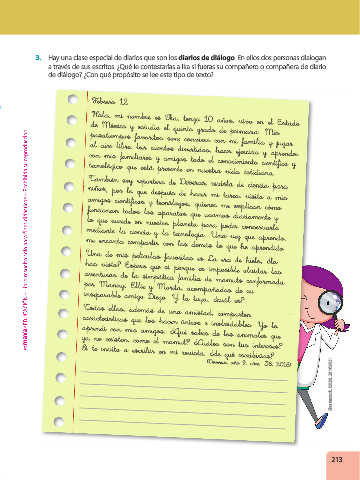 3. Hay una clase especial de diarios que son los diarios de diálogo. En ellos dos personas dialogan
a través de sus escritos. ¿Qué le contestarías a Ika si fueras su compañero o compañera de diario
de diálogo? ¿Con qué propósito se lee este tipo de texto?
Febrero 12
Hola, mi nombre es Ika, tengo 10 años, vivo en el Estado
de México y estudio el quinto grado de primaria. Mis
pasatiempos favoritos son: convivir con mi familia y jugar
al aire libre, leer cuentos divertidos, hacer ejercicio y aprender
con mis familiares y amigos todo el conocimiento científico y
tecnológico que está presente en nuestra vida cotidiana.
También soy reportera de Deveras, revista de ciencia para
niños, por lo que después de hacer mi tarea, visito a mis
amigos científicos y tecnólogos, quienes me explican cómo
funcionan todos los aparatos que usamos diariamente y
lo que sucede en nuestro planeta para poder conservarlo
mediante la ciencia y la tecnología. Una vez que aprendo,
me encanta compartir con los demás lo que he aprendido.
Una de mis películas favoritas es La era de hielo, ¿la
has visto? Espero que sí porque es imposible olvidar las
aventuras de la simpática familia de mamuts conformada
por Manny, Ellie y Morita, acompañados de su
inseparable amigo Diego. Y la tuya, ¿cuál es?
Todos ellos, además de una amistad, comparten
características que los hacen únicos e inolvidables. Yo lo
aprendí con mis amigos. ¿Qué sabes de los animales que
ya no existen, como el mamut? ¿Cuáles son tus intereses?
Si te invito a escribir en mi revista, ¿de qué escribirías?
213